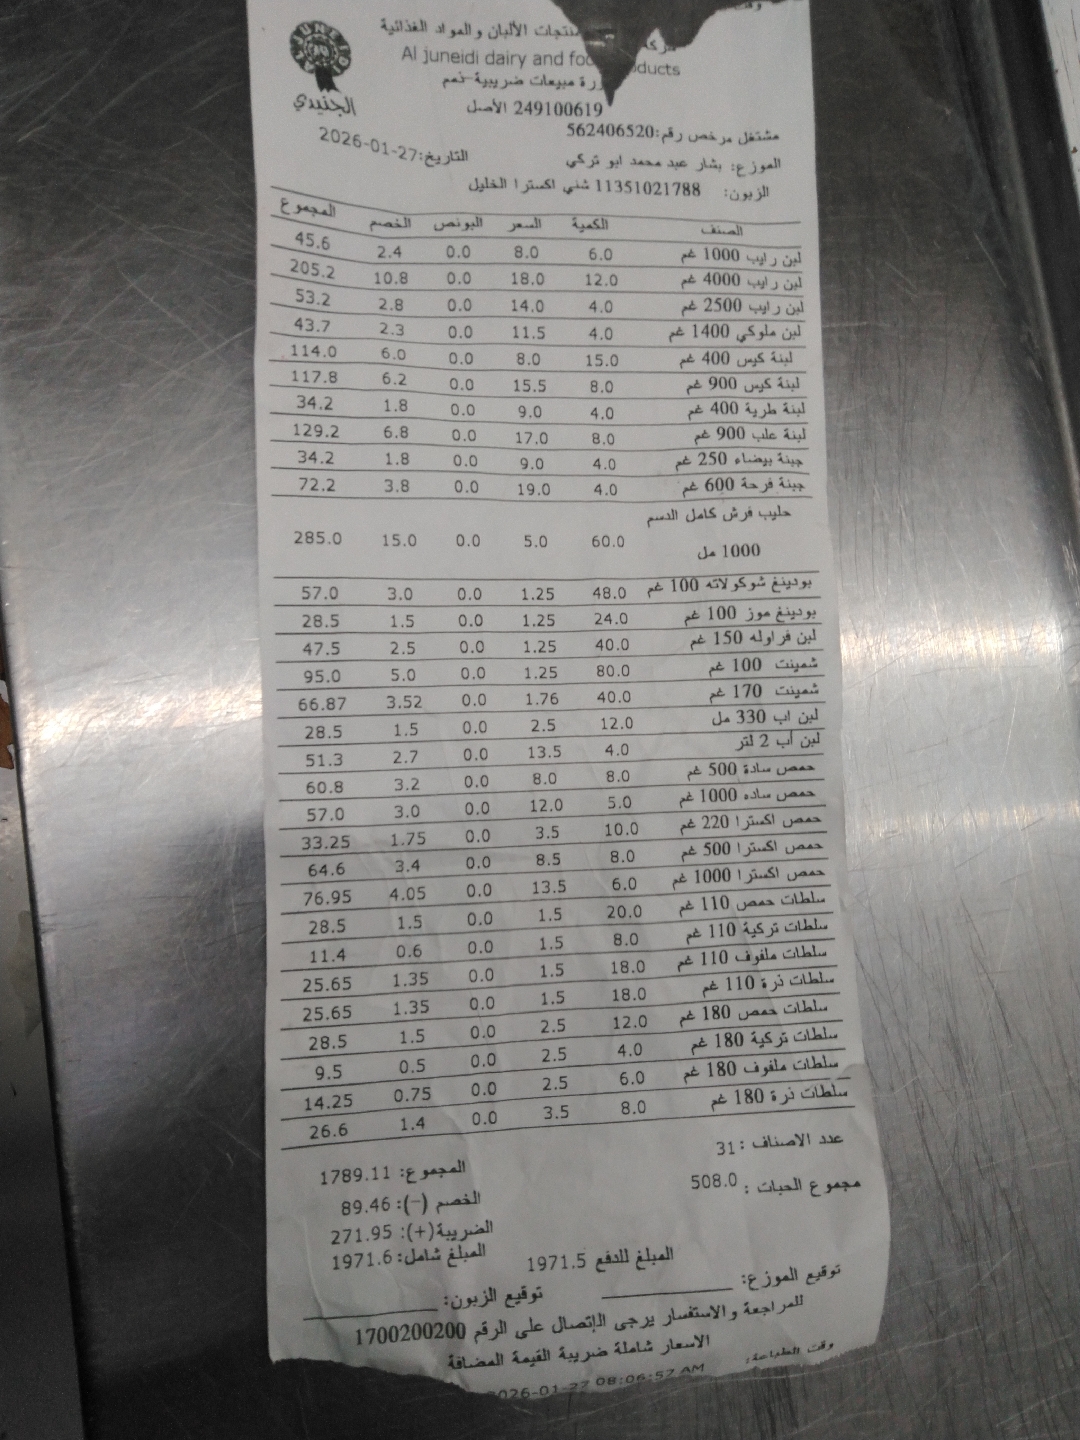 الجنيدي
منتجات الألبان والمواد الغذائية
Al juneidi dairy and
مبيعات ضريبية-ذمم
249100619 الأصل
مشتغل مرخص رقم:562406520
الموزع: بشار عبد محمد ابو تركي التاريخ:2026-01-27
الزبون: 11351021788 شني اكسترا الخليل
الصنف الكمية السعر البونص الخصم المجموع
لبن رايب 1000 غم 6.0 8.0 0.0 2.4 45.6
لبن رايب 4000 غم 12.0 18.0 0.0 10.8 205.2
لبن رايب 2500 غم 4.0 14.0 0.0 2.8 53.2
لبن ملوكي 1400 غم 4.0 11.5 0.0 2.3 43.7
لبنة كيس 400 غم 15.0 8.0 0.0 6.0 114.0
لبنة كيس 900 غم 8.0 15.5 0.0 6.2 117.8
لبنة طرية 400 غم 4.0 9.0 0.0 1.8 34.2
لبنة علب 900 غم 8.0 17.0 0.0 6.8 129.2
جبنة بيضاء 250 غم 4.0 9.0 0.0 1.8 34.2
جبنة فرحة 600 غم 4.0 19.0 0.0 3.8 72.2
حليب فرش كامل الدسم
1000 مل 60.0 5.0 0.0 15.0 285.0
بودينغ شوكولاته 100 غم 48.0 1.25 0.0 3.0 57.0
بودينغ موز 100 غم 24.0 1.25 0.0 1.5 28.5
لبن فراوله 150 غم 40.0 1.25 0.0 2.5 47.5
شمينت 100 غم 80.0 1.25 0.0 5.0 95.0
شمينت 170 غم 40.0 1.76 0.0 3.52 66.87
لبن اب 330 مل 12.0 2.5 0.0 1.5 28.5
لبن أب 2 لتر 4.0 13.5 0.0 2.7 51.3
حمص سادة 500 غم 8.0 8.0 0.0 3.2 60.8
حمص ساده 1000 غم 5.0 12.0 0.0 3.0 57.0
حمص اكسترا 220 غم 10.0 3.5 0.0 1.75 33.25
حمص اكسترا 500 غم 8.0 8.5 0.0 3.4 64.6
حمص اكسترا 1000 غم 6.0 13.5 0.0 4.05 76.95
سلطات حمص 110 غم 20.0 1.5 0.0 1.5 28.5
سلطات تركية 110 غم 8.0 1.5 0.0 0.6 11.4
سلطات ملفوف 110 غم 18.0 1.5 0.0 1.35 25.65
سلطات ذرة 110 غم 18.0 1.5 0.0 1.35 25.65
سلطات حمص 180 غم 12.0 2.5 0.0 1.5 28.5
سلطات تركية 180 غم 4.0 2.5 0.0 0.5 9.5
سلطات ملفوف 180 غم 6.0 2.5 0.0 0.75 14.25
سلطات ذرة 180 غم 8.0 3.5 0.0 1.4 26.6
عدد الاصناف :31 المجموع: 1789.11
مجموع الحبات : 508.0 الخصم (-): 89.46
الضريبة(+): 271.95
المبلغ للدفع 1971.5 المبلغ شامل: 1971.6
توقيع الموزع: توقيع الزبون:
للمراجعة والاستفسار يرجى الإتصال على الرقم 1700200200
الاسعار شاملة ضريبة القيمة المضافة
وقت الطباعة: 2026-01-27 08:06:57 AM